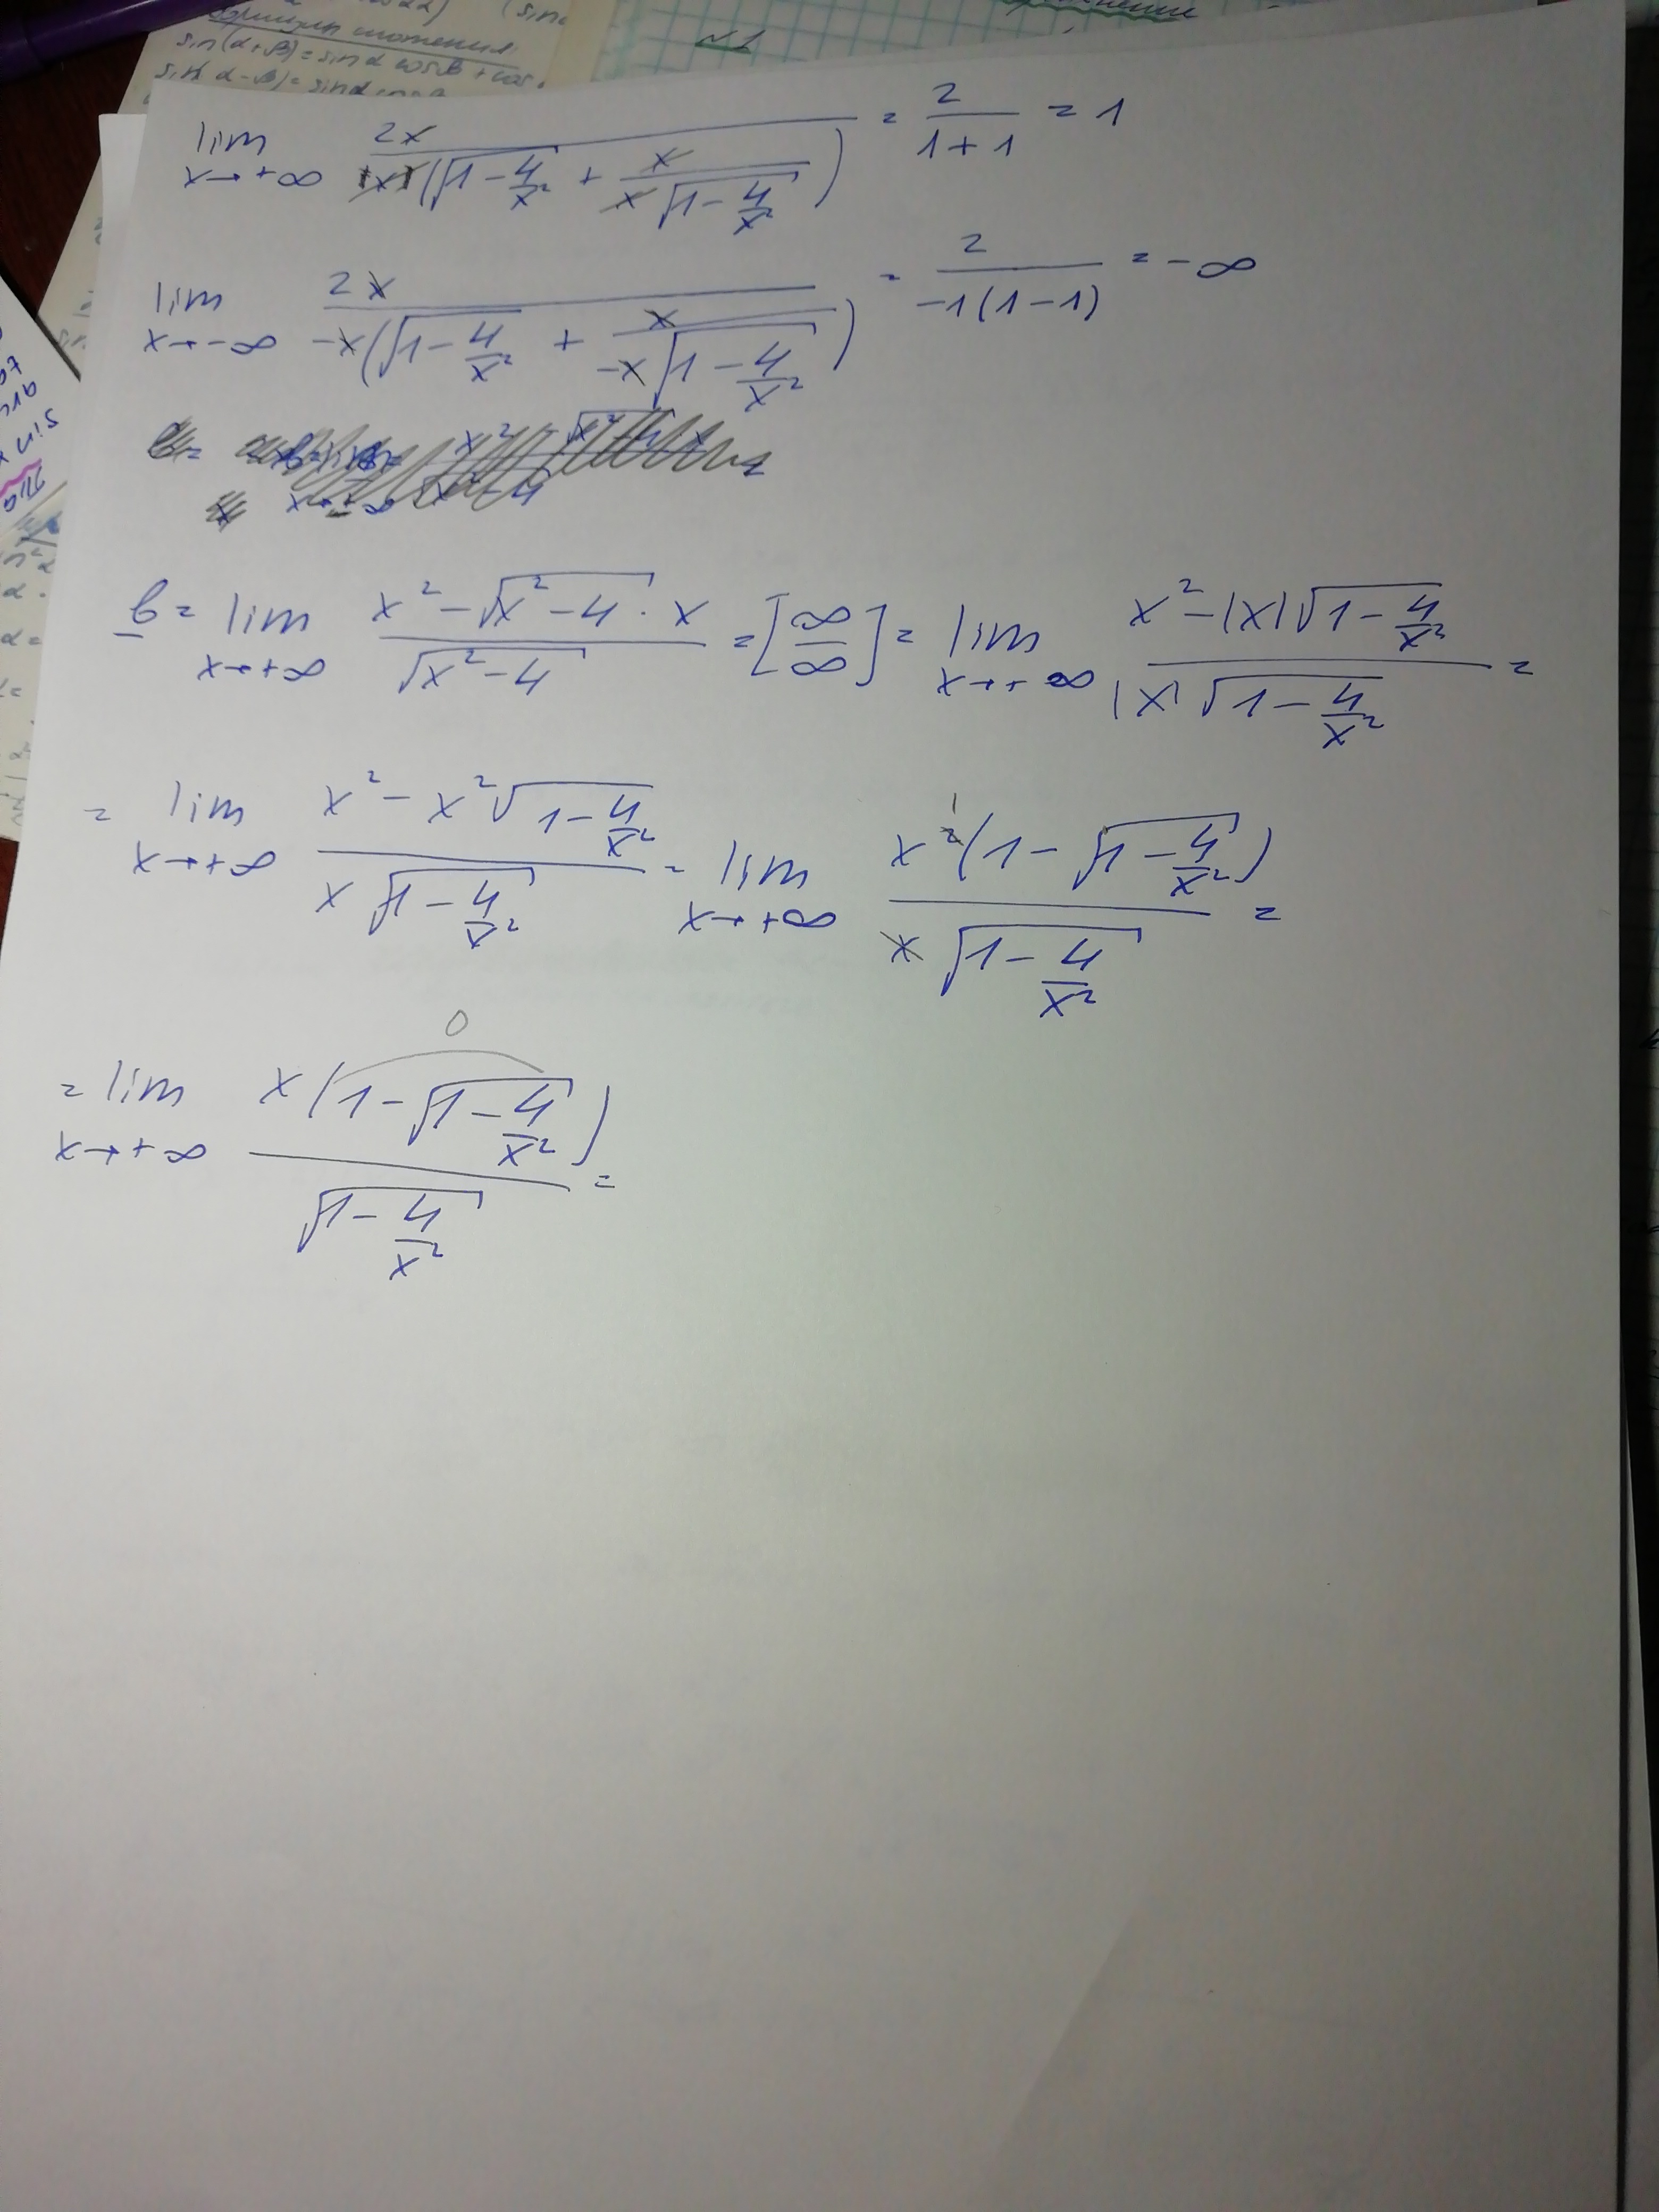 sin(α+β)=sinα cosβ + cos
sin(α-β)=sinα cosβ
N1
lim x→+∞ 2x / |x|(√(1-4/x²) + x/(x√(1-4/x²))) = 2/(1+1) = 1
lim x→-∞ 2x / -x(√(1-4/x²) + x/(-x√(1-4/x²))) = 2/(-1(1-1)) = -∞
b = lim x→+∞ (x² - √(x²-4) · x)/√(x²-4) = [∞/∞] = lim x→+∞ (x² - |x|√(1-4/x²))/(|x|√(1-4/x²)) =
= lim x→+∞ (x² - x²√(1-4/x²))/(x√(1-4/x²)) = lim x→+∞ x²(1-√(1-4/x²))/(x√(1-4/x²)) =
0
= lim x→+∞ x(1-√(1-4/x²))/√(1-4/x²) =